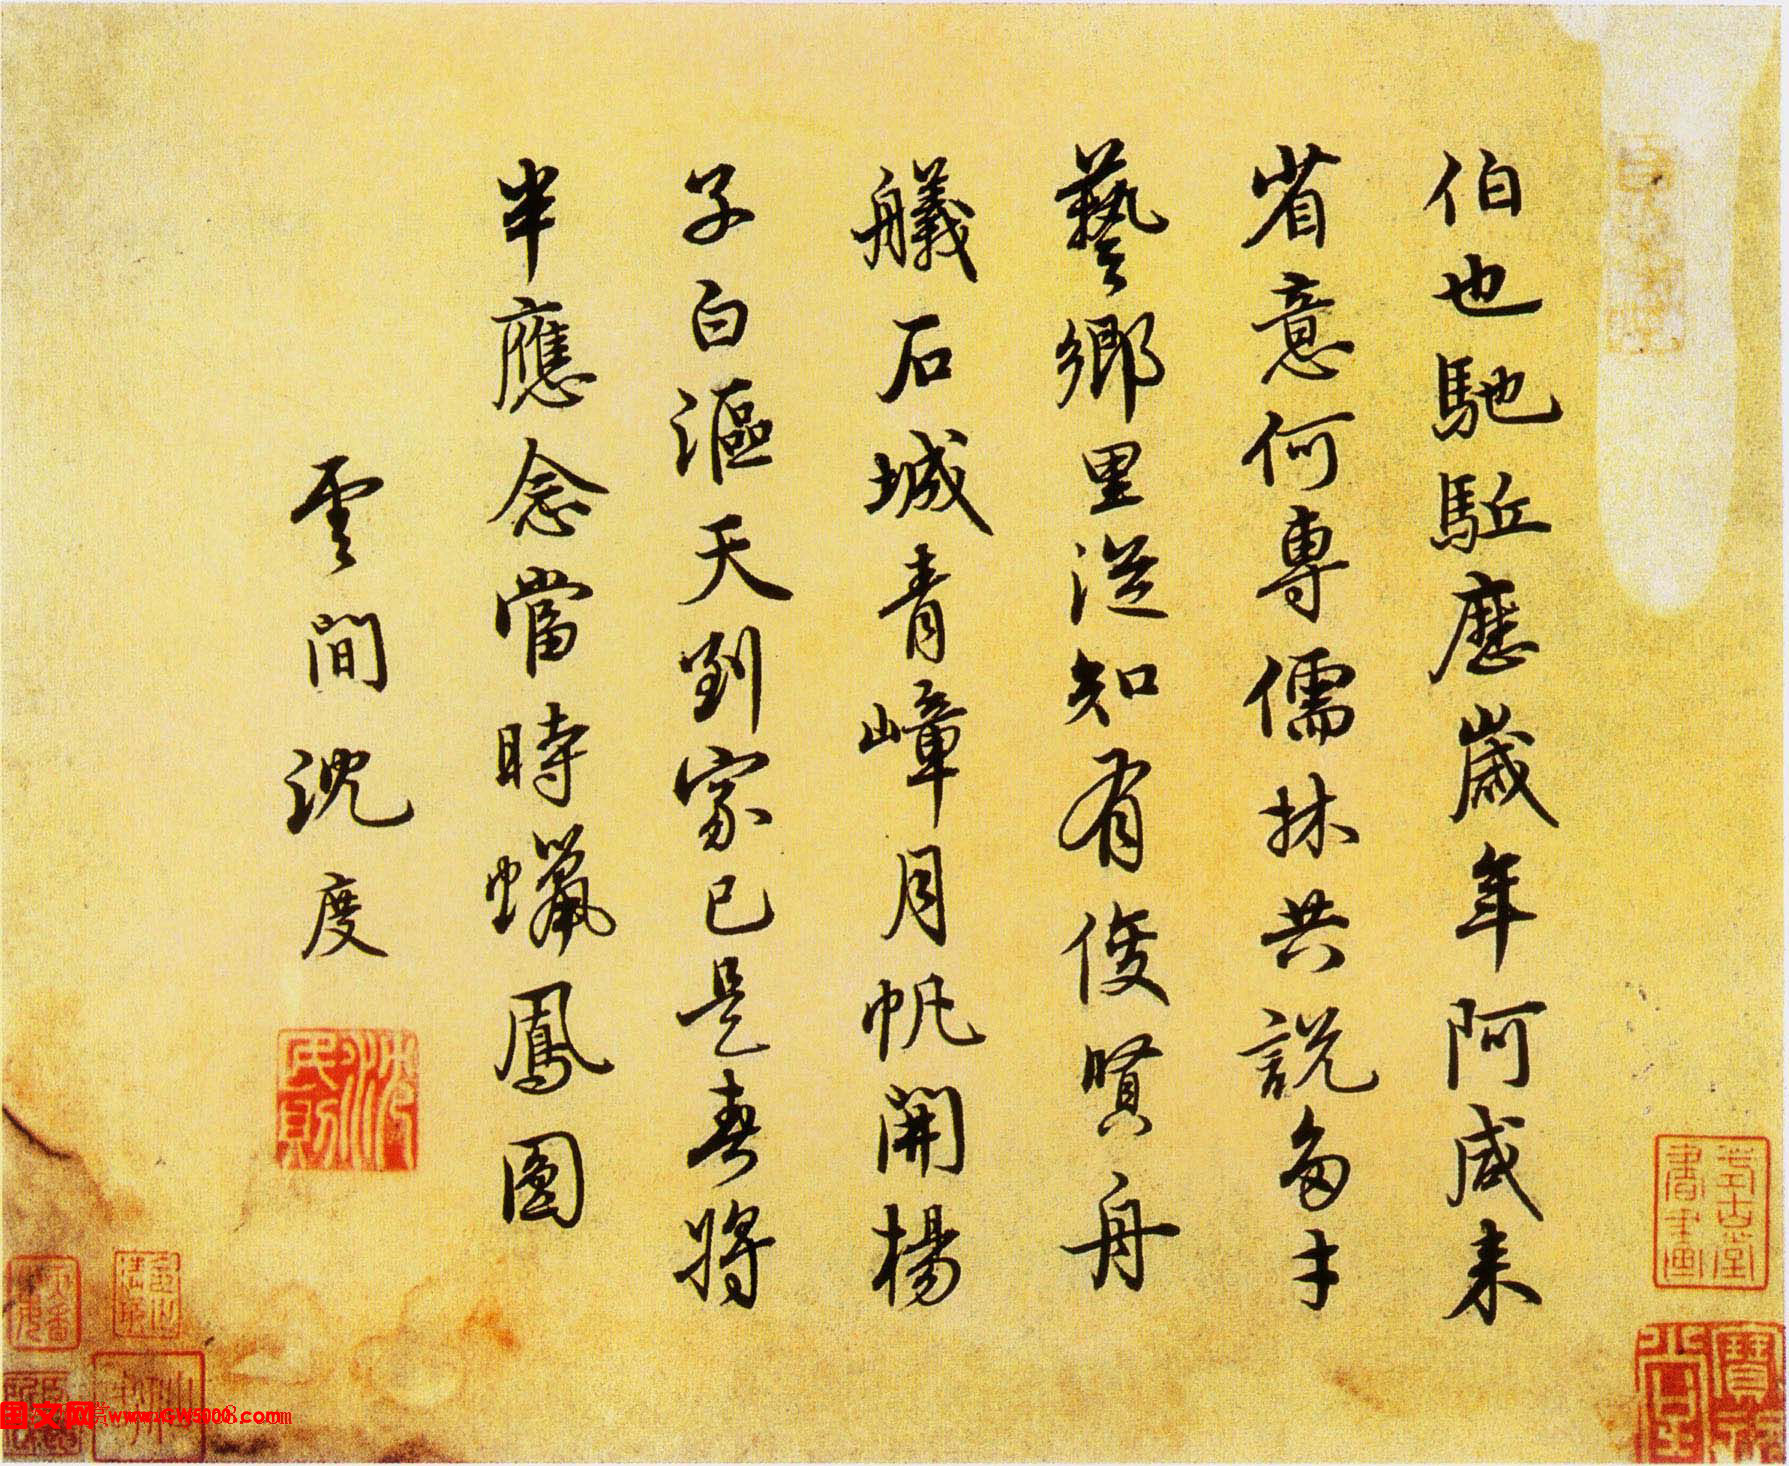 伯也馳駈歷歲年阿咸来
省意何專儒林共説多才
藝鄉里從知有俊賢舟
艤石城青嶂月帆開楊
子白漚天到家已是春將
半應念當時蠟鳳圓
雲間沈度
沈氏民則
書畫
寶
堂
国文网 www.GW5000.com